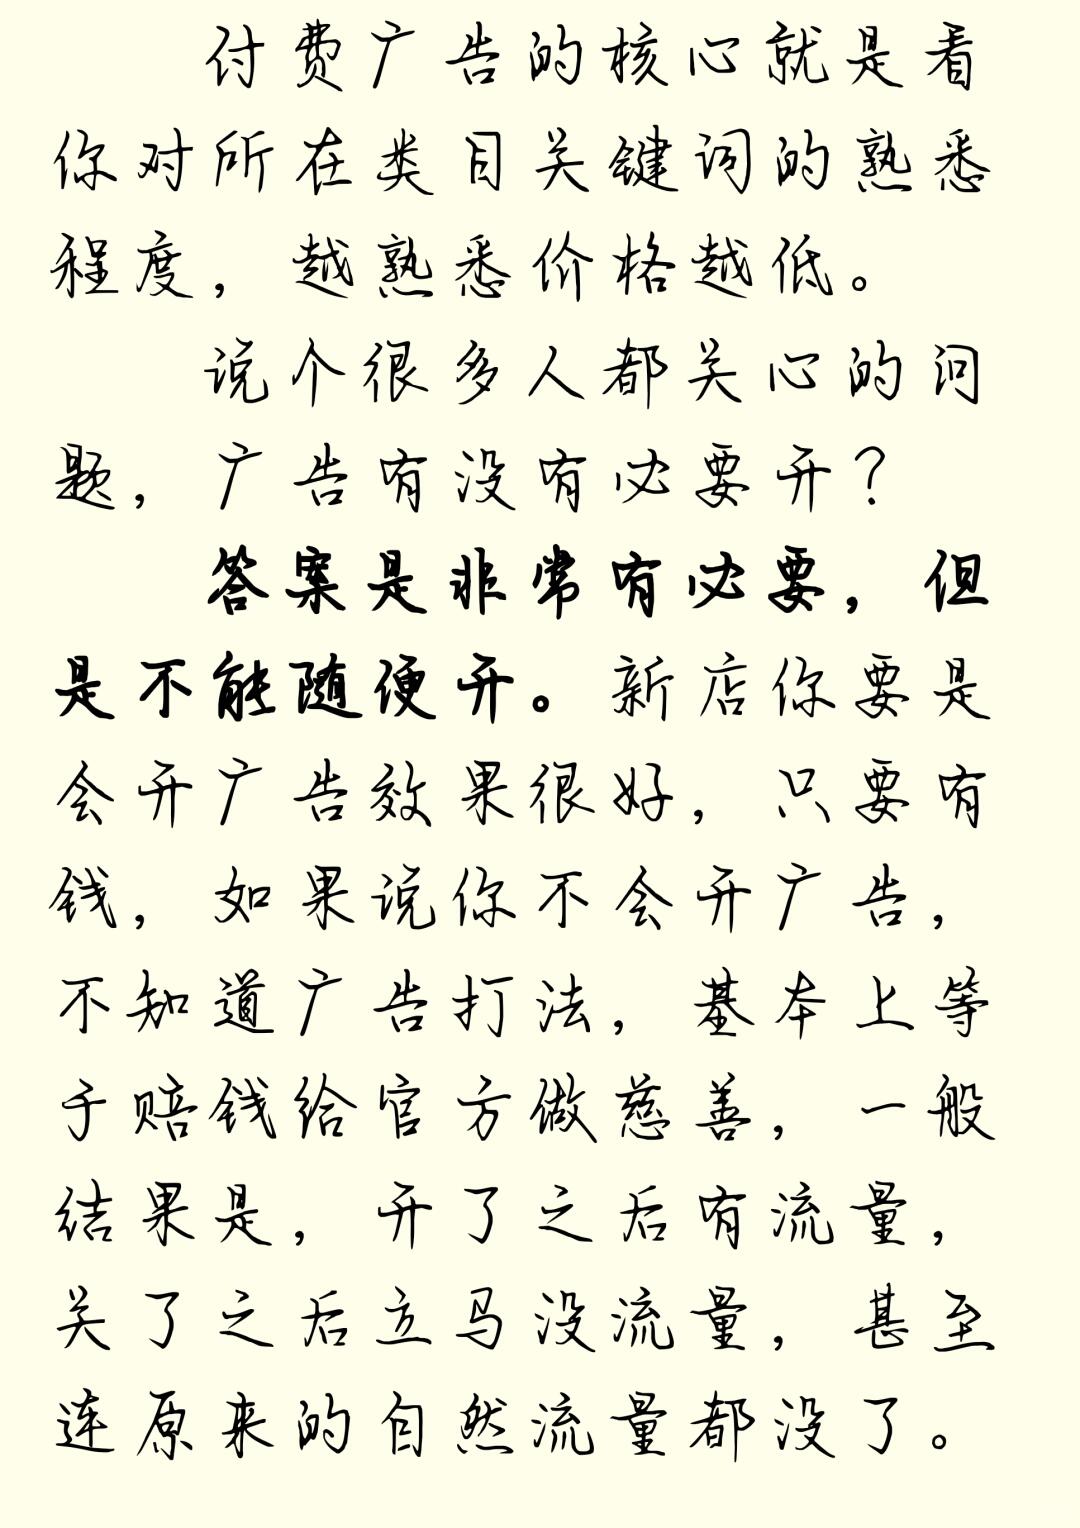 付费广告的核心就是看
你对所在类目关键词的熟悉
程度，越熟悉价格越低。
说个很多人都关心的问
题，广告有没有必要开？
答案是非常有必要，但
是不能随便开。新店你要是
会开广告效果很好，只要有
钱，如果说你不会开广告，
不知道广告打法，基本上等
于赔钱给官方做慈善，一般
结果是，开了之后有流量，
关了之后立马没流量，甚至
连原来的自然流量都没了。